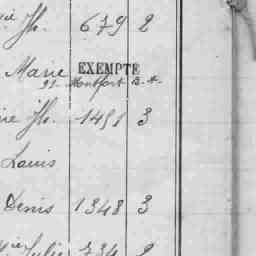 ie Jh. 679 2
Marie EXEMPTE
91 - Montfort B. A.
ie Jh. 1491 3
Louis
Denis 1348 3
ie Julie 734 2